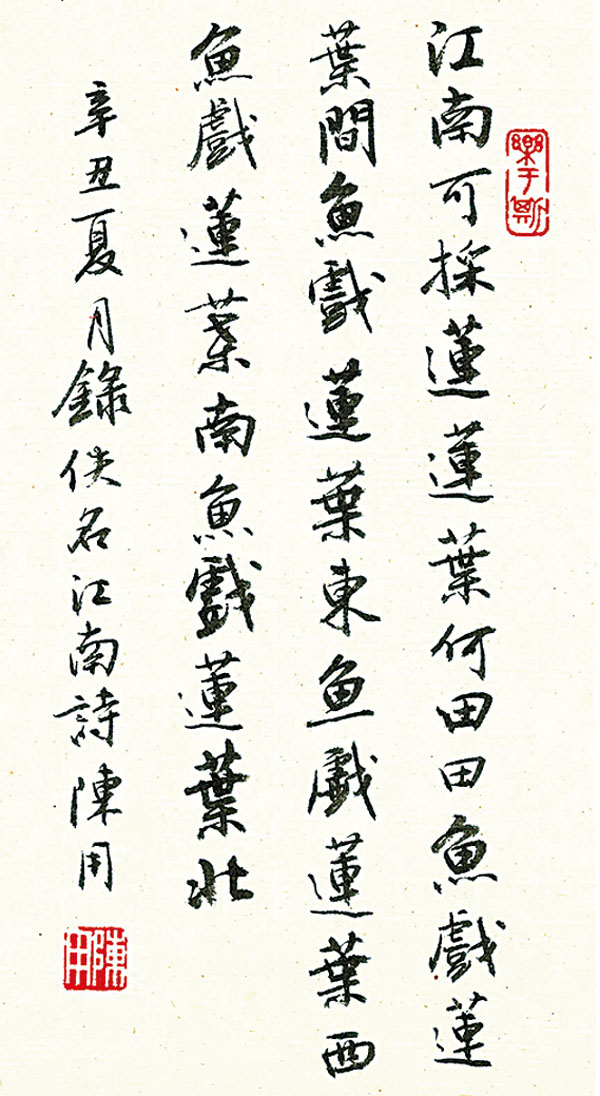 樂于斯
江南可採蓮蓮葉何田田魚戲蓮
葉間魚戲蓮葉東魚戲蓮葉西
魚戲蓮葉南魚戲蓮葉北
辛丑夏月錄佚名江南詩陳用
陳用